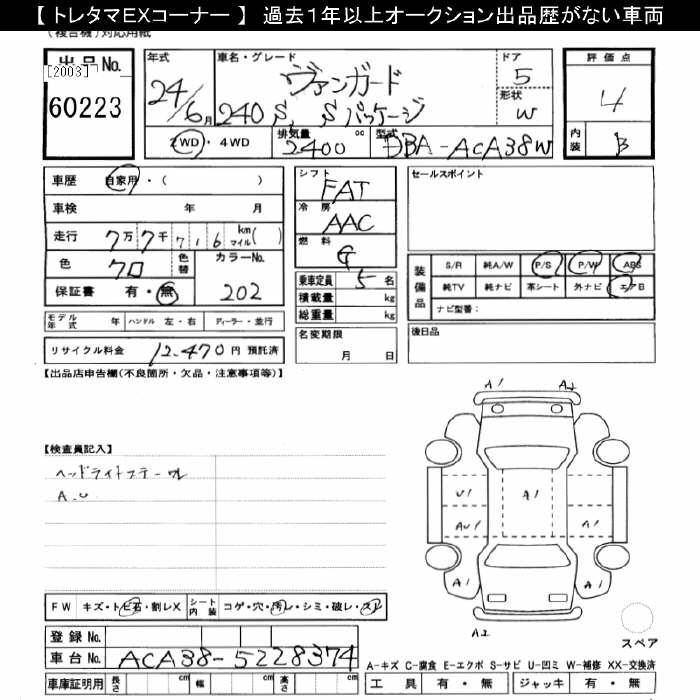 【 トレタマEXコーナー 】 過去1年以上オークション出品歴がない車両
(複合機)対応用紙
出品No. [2003] 60223
年式 24/6月
車名・グレード ヴァンガード
240S, Sパッケージ
ドア 5
形状 W
評価点 4
内装 B
2WD・4WD
排気量 2400 cc
型式 DBA-ACA38W
車歴 自家用・( )
車検 年 月
走行 7万7千716 km マイル( )
色 クロ 色替 カラーNo. 202
保証書 有・無
モデル年式 年 ハンドル 左・右 ディーラー・並行
リサイクル料金 12,470円 預託済
シフト FAT
冷房 AAC
燃料 G
乗車定員 5名
積載量 kg
総重量 kg
名変期限
月 日
セールスポイント
装備品 S/R 純A/W P/S P/W ABS
純TV 純ナビ 革シート 外ナビ エアB
ナビ型番:
後日品
【出品店申告欄(不良箇所・欠品・注意事項等)】
【検査員記入】
A.U
A1 A2
U1 A1
AU1 A1
A1 A1
A2
スペア
FW キズ・トビ石・割レX シート内装 コゲ・穴・汚レ・シミ・破レ・スレ
登録No.
車台No. ACA38-5228374
車庫証明用 長さ cm 幅 cm 高さ cm
A-キズ C-腐食 E-エクボ S-サビ U-凹ミ W-補修 XX-交換済
工具 有・無 ジャッキ 有・無